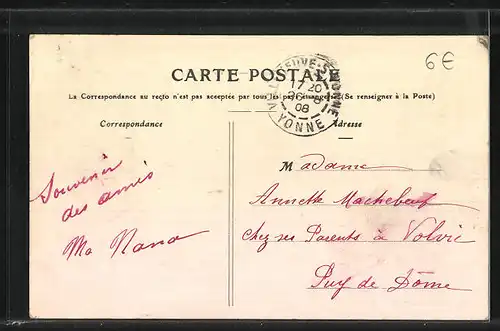 6€
CARTE POSTALE
La Correspondance au recto n'est pas acceptée par tous les pays étrangers (Se renseigner à la Poste)
VILLENEUVE-S-YONNE
17 20
08
YONNE
Correspondance
Adresse
Souvenir
des amis
Ma Nana
Madame
Annette Machebœuf
Chez ses Parents à Volvic
Puy de Dôme